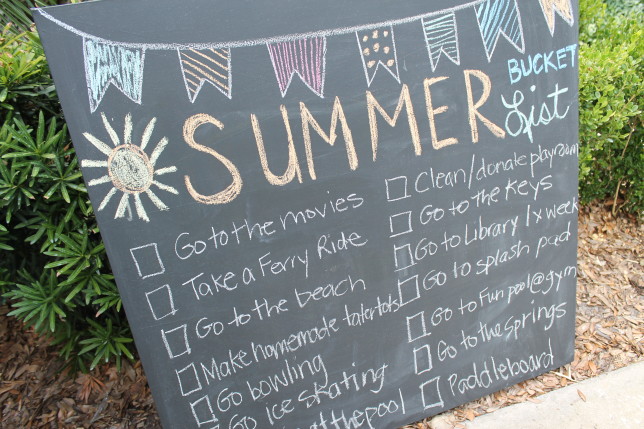 SUMMER BUCKET List
Go to the movies
Take a Ferry Ride
Go to the beach
Make homemade tatertots
Go bowling
Go ice skating
at the pool
Clean/donate playroom
Go to the Keys
Go to Library 1x week
Go to splash pad
Go to Fun pool@gym
Go to the springs
Paddleboard